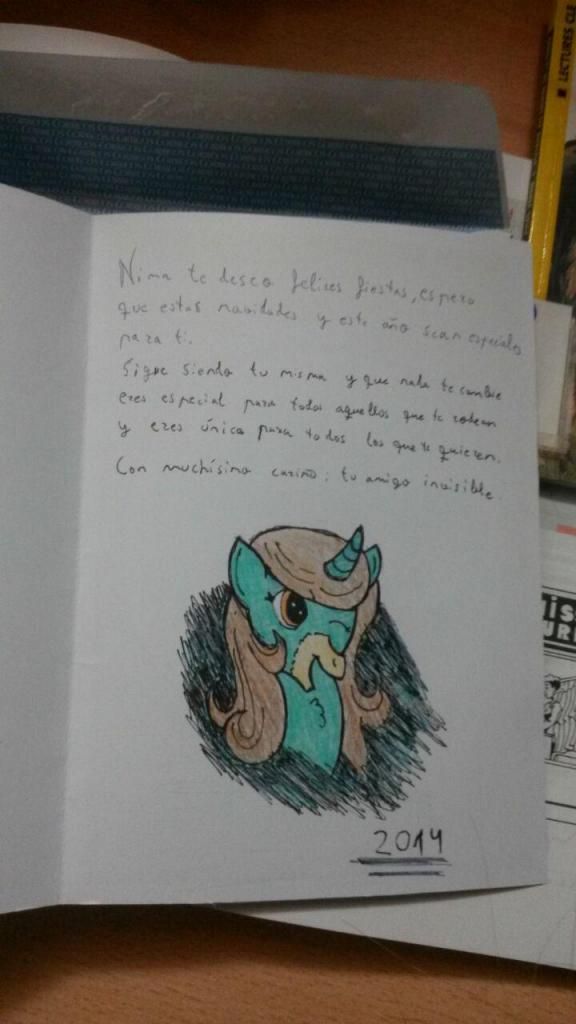 LECTURES CLE
Nima te deseo felices fiestas, espero
que estas navidades y este año sean especiales
para ti.
Sigue siendo tu misma y que nada te cambie
eres especial para todos aquellos que te rodean
y eres única para todos los que te quieren.
Con muchísimo cariño: tu amigo invisible.
2014